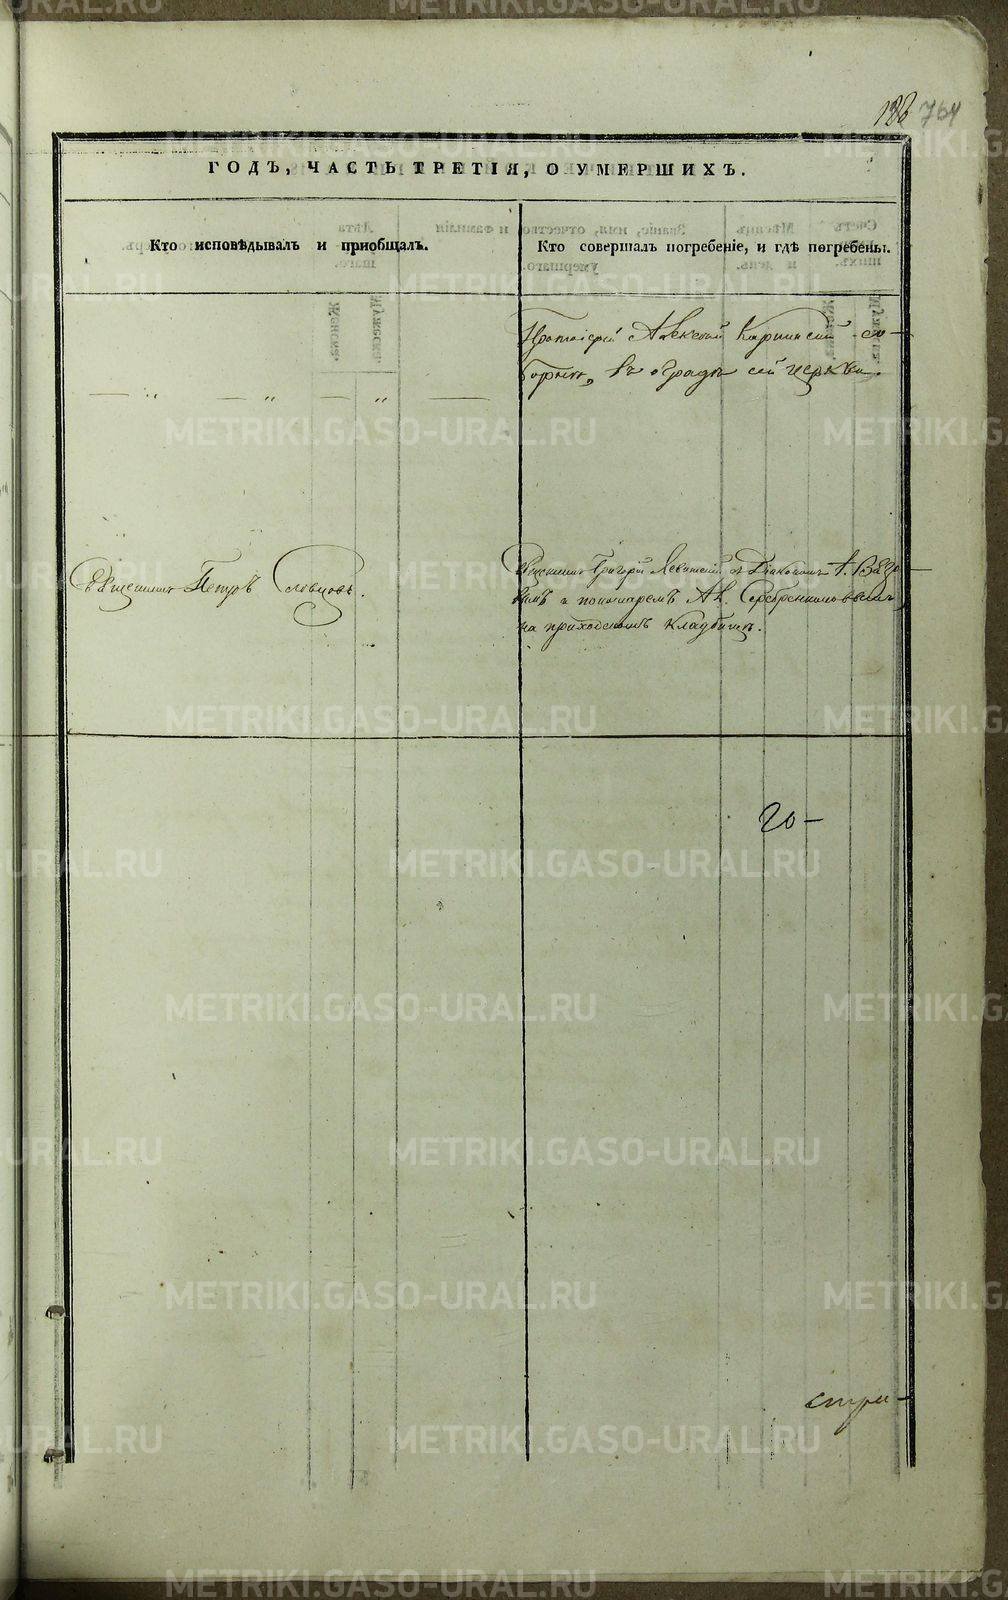 188 764
ГОДЪ, ЧАСТЬ ТРЕТІЯ, О УМЕРШИХЪ.
Кто исповѣдывалъ и приобщалъ.
Кто совершалъ погребеніе, и гдѣ погребены.
Протоіерей Алексей Карпинскій со-
борнѣ, въ оградѣ сей церкви.
— „ — „ — „ —
Священникъ Петръ Словцовъ.
Священникъ Григорій Левитскій съ Діакономъ
и пономаремъ Ал. Серебренниковымъ
на приходскомъ кладбищѣ.
20 —
стра-
METRIKI.GASO-URAL.RU